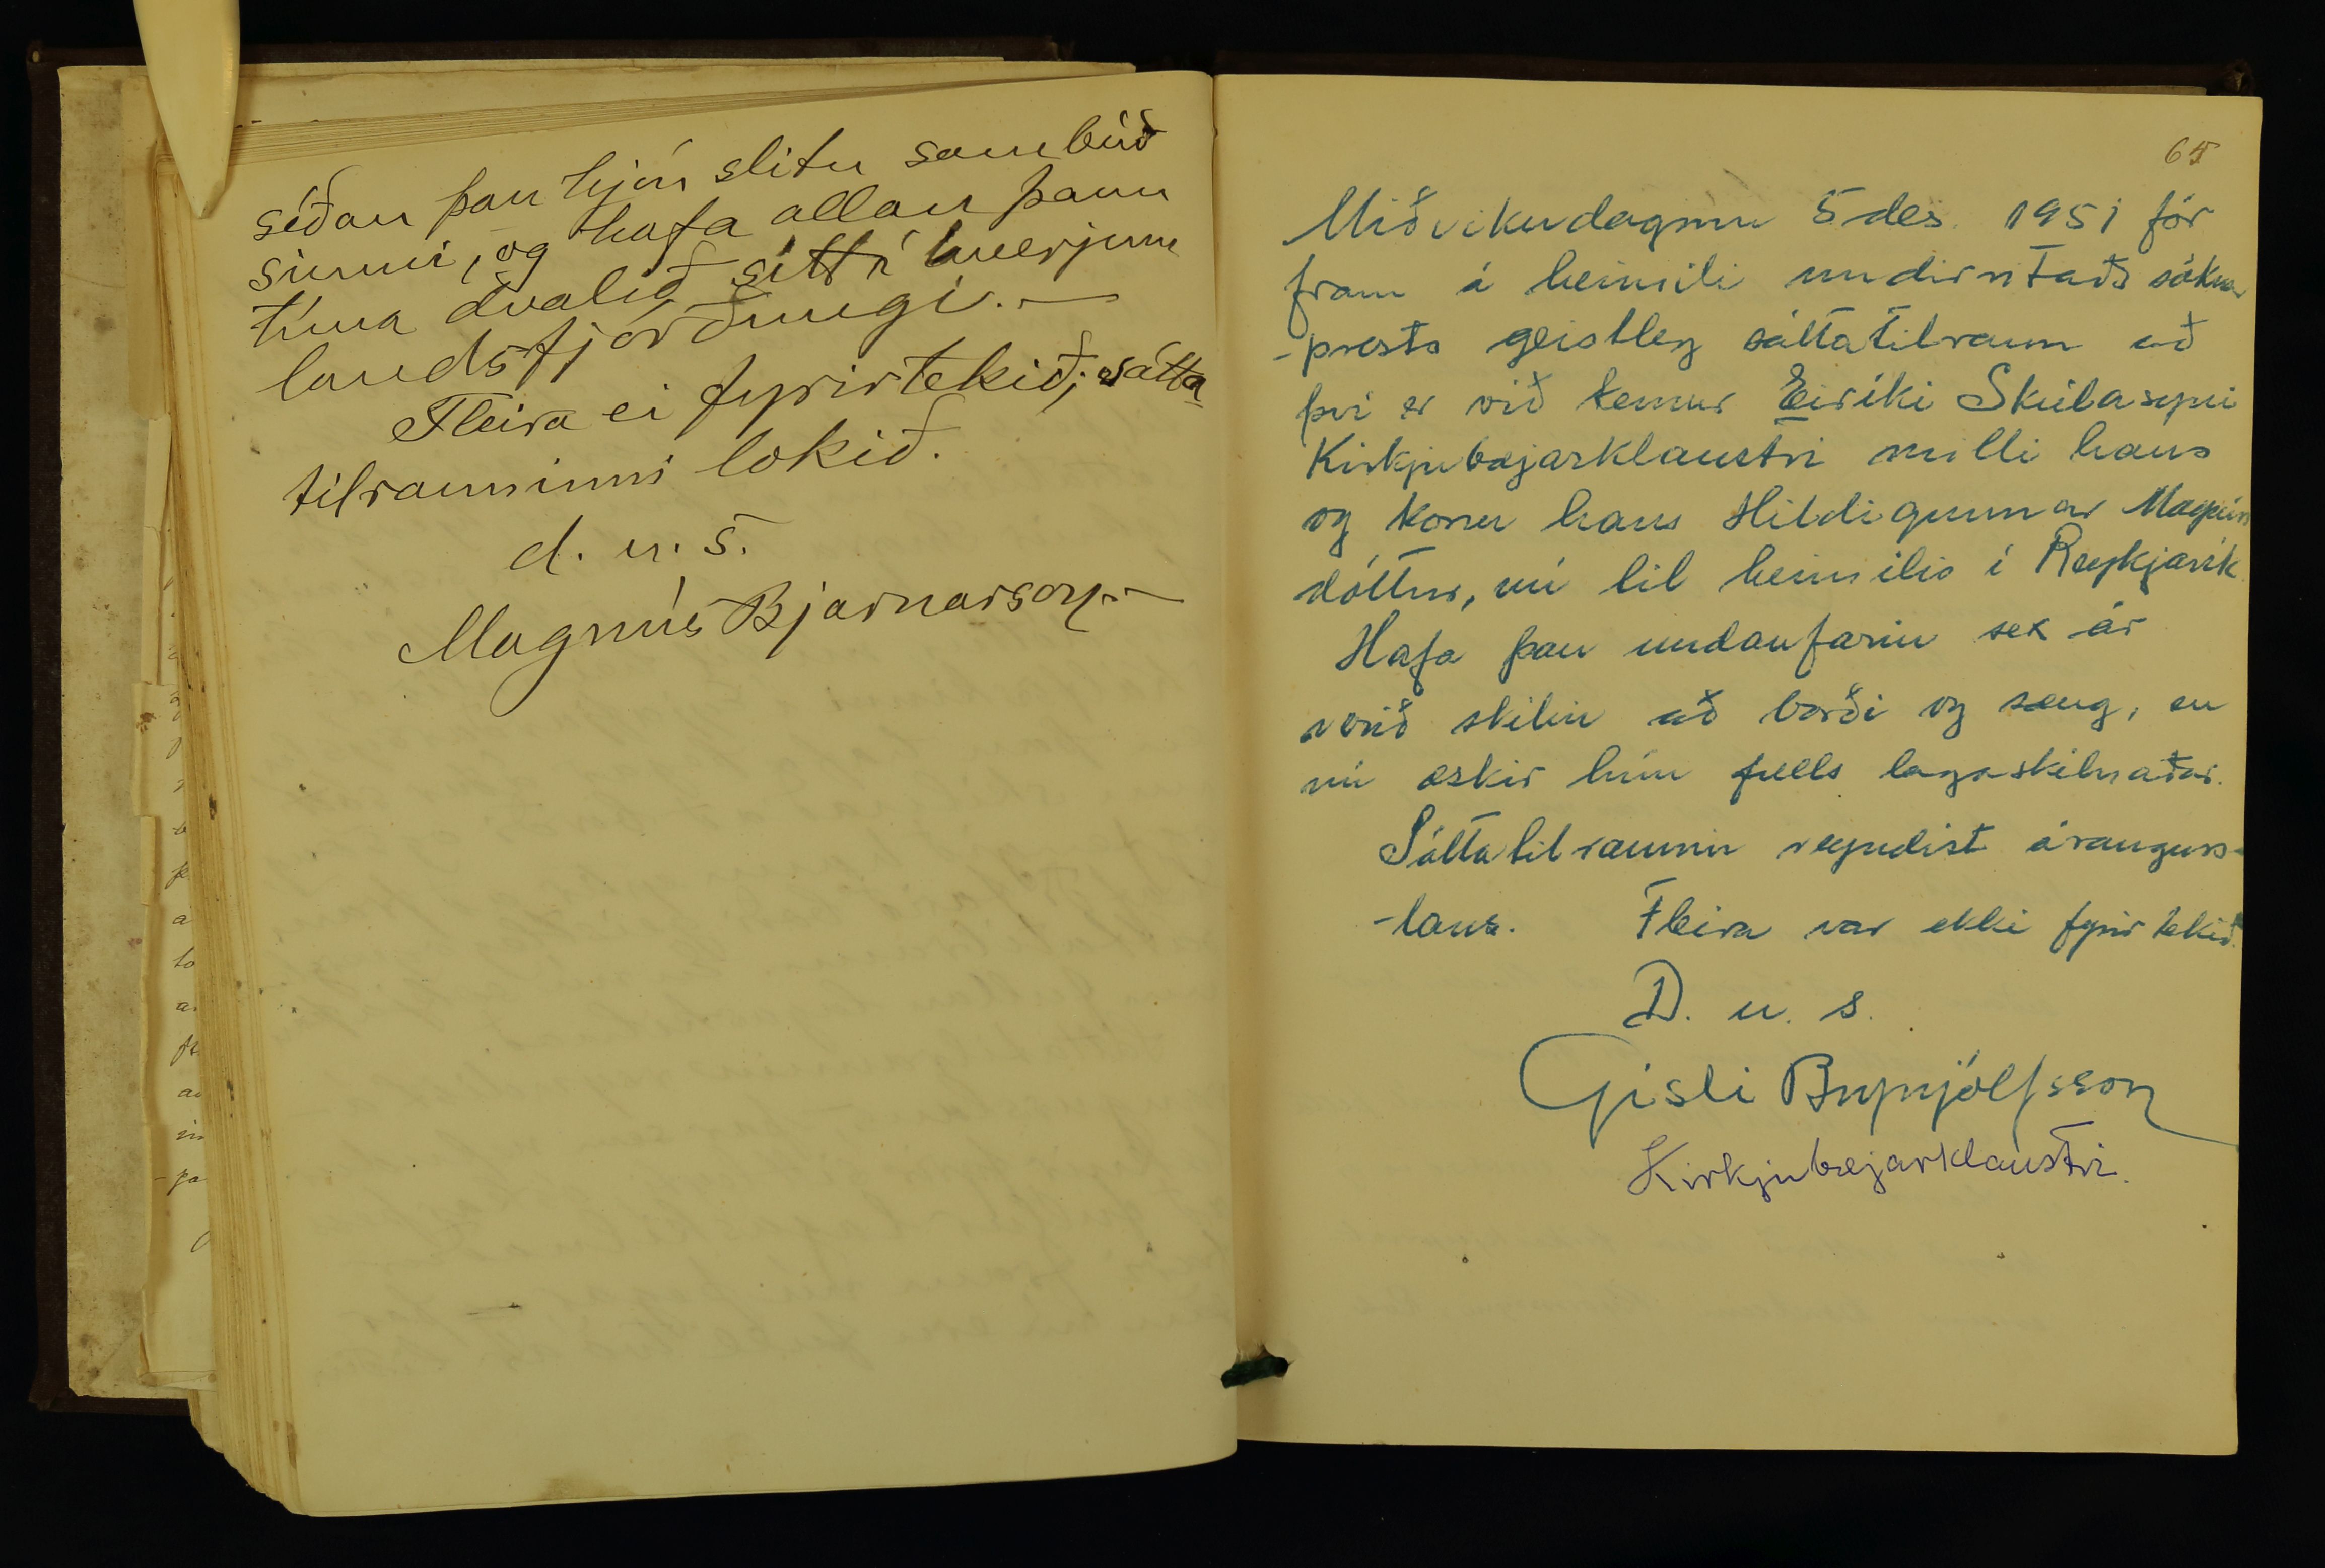 síðan þau hjón slitu sambúð
sinni, og hafa allan þann
tíma dvalið sitt í hverjum
landsfjórðungi. —
Fleira ei fyrirtekið; sátta
tilrauninni lokið.
d. u. s.
Magnús Bjarnarson. —
65
Miðvikudaginn 5 des. 1951 fór
fram á heimili undirritaðs sóknar
-prests geistleg sáttatilraun að
því er við kemur Eiríki Skúlasyni
Kirkjubæjarklaustri milli hans
og konu hans Hildigunnar Magnús
dóttur, nú til heimilis í Reykjavík.
Hafa þau undanfarin sex ár
verið skilin að borði og sæng, en
nú æskir hún fulls lagaskilnaðar.
Sáttatilraunin reyndist árangurs-
-laus. Fleira var ekki fyrir tekið.
D. u. s.
Gísli Brynjólfsson
Kirkjubæjarklaustri.